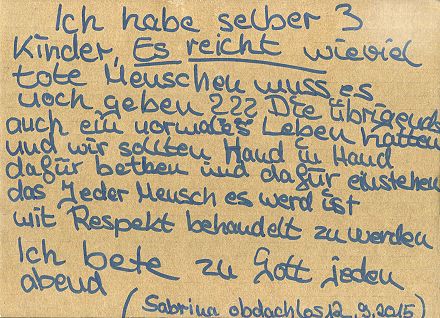 Ich habe selber 3
Kinder, Es reicht wieviel
tote Menschen muss es
noch geben ??? Die übrigends
auch ein normales Leben hatten
und wir sollten Hand in Hand
dafür bethen und dafür einstehen
das Jeder Mensch es werd ist
mit Respekt behandelt zu werden
Ich bete zu Gott jeden
abend
(Sabrina obdachlos 12.9.2015)